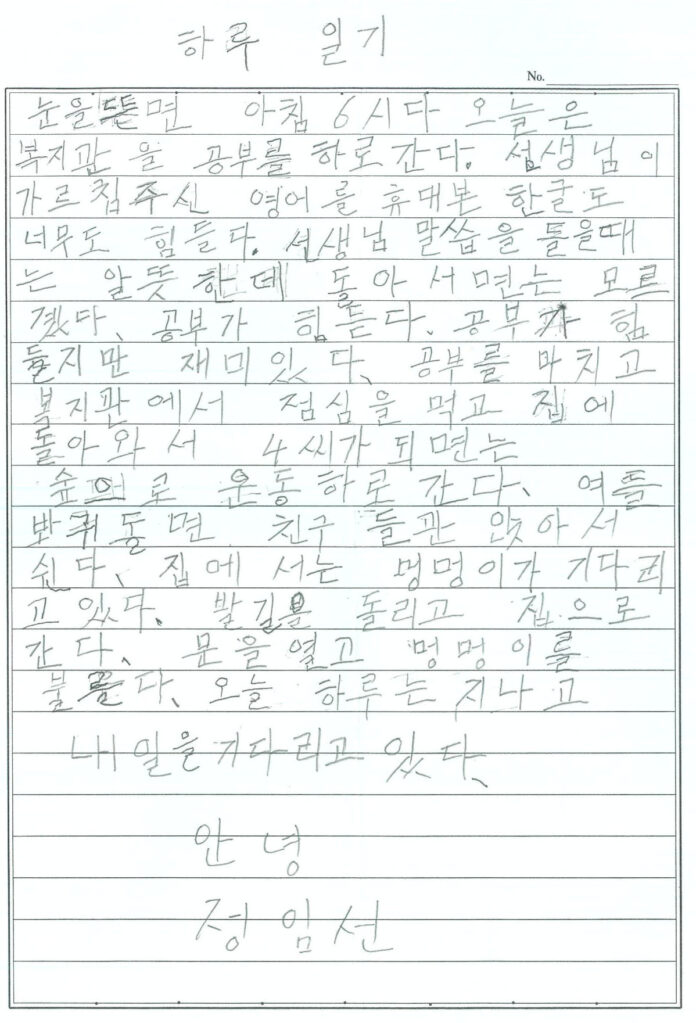 하루 일기
No.
눈을 뜯면 아침 6시다 오늘은
복지관을 공부를 하로간다. 섬생님이
가르침주신 영어를 휴대본 한글도
너무도 힘들다. 선생님 말씁을 들을때
는 알뜻한데 돌아서면는 모르
겠다、 공부가 힘듣다. 공부가 힘
들지만 재미있다、 공부를 마치고
복지관에서 점심을 먹고 집에
돌아와서 4씨가 되면는
숲의로 운동하로 간다、 여들
봐퀴돌면 친구들관 앉아서
쉰다、 집에서는 멍멍이가 기다리
고있다、 발길을 돌리고 집으로
간다、 문을열고 멍멍이를
불른다、 오늘 하루는 지나고
내일을기다리고 있다、
안녕
정임선